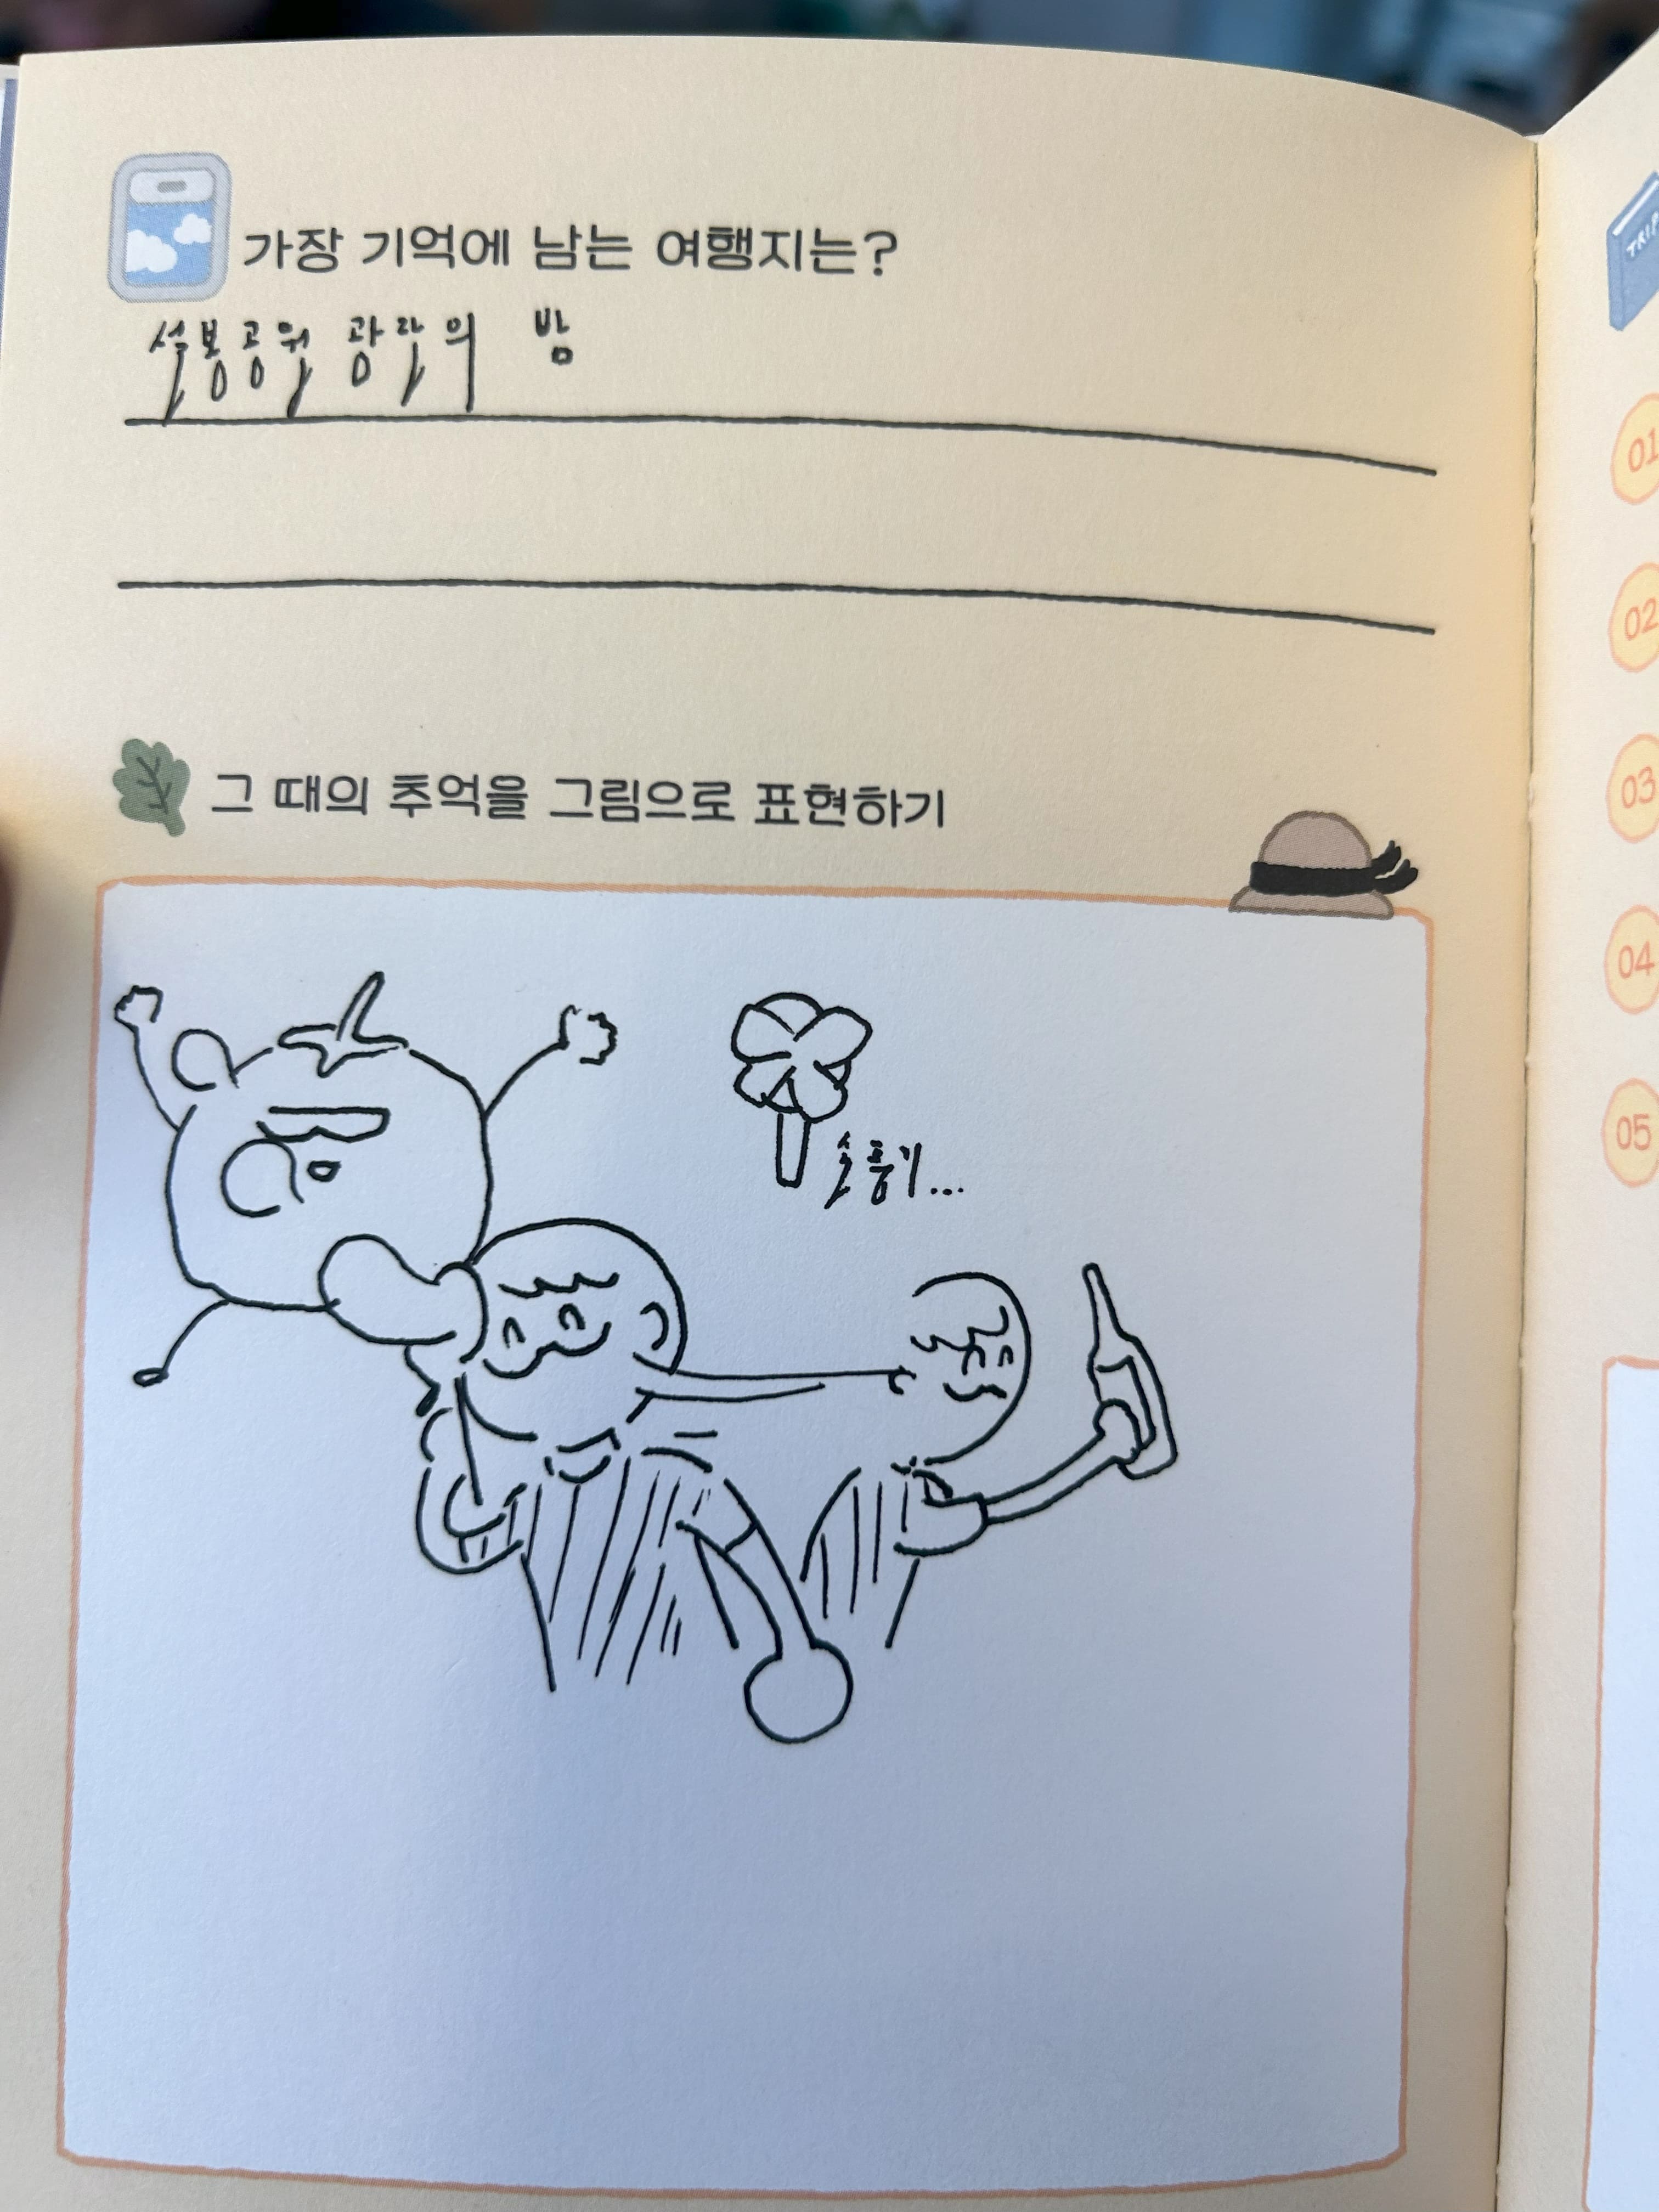 가장 기억에 남는 여행지는?
설봉공원 광란의 밤
그 때의 추억을 그림으로 표현하기
손풍기...
TRIP
01
02
03
04
05